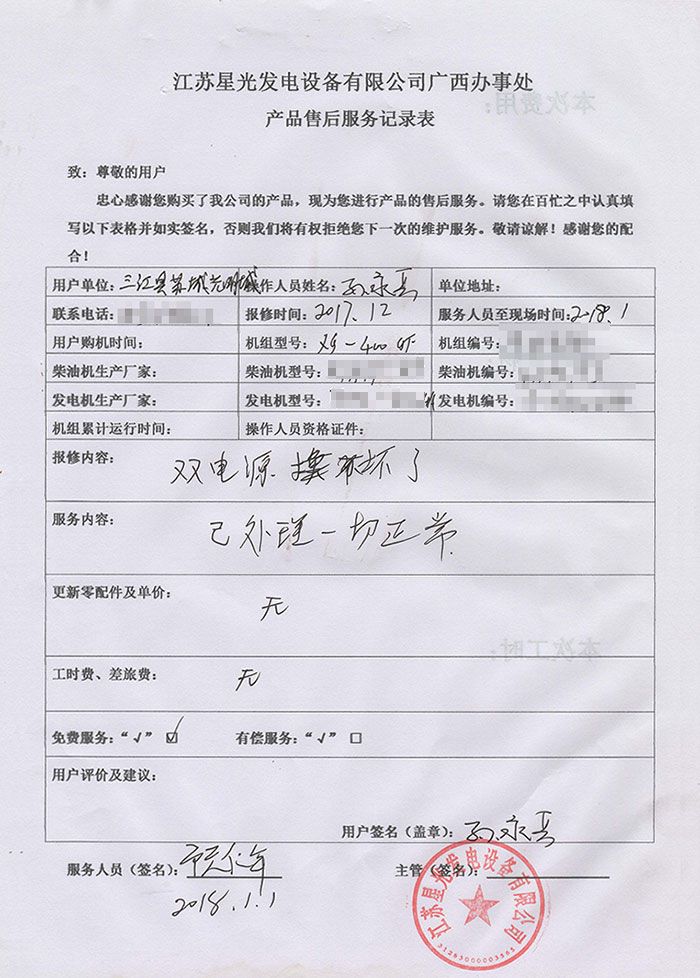 江苏星光发电设备有限公司广西办事处
产品售后服务记录表
本次费用：
致：尊敬的用户
忠心感谢您购买了我公司的产品，现为您进行产品的售后服务。请您在百忙之中认真填
写以下表格并如实签名，否则我们将有权拒绝您下一次的维护服务。敬请谅解！感谢您的配
合！
用户单位：三江县 城 操作人员姓名： 永 单位地址：
联系电话： 报修时间：2017.12 服务人员至现场时间：2018.1
用户购机时间： 机组型号： 机组编号：
柴油机生产厂家： 柴油机型号： 柴油机编号：
发电机生产厂家： 发电机型号： 发电机编号：
机组累计运行时间： 操作人员资格证件：
报修内容：
双电源 坏了
服务内容：
已处理一切正常
更新零配件及单价：
无
本次工时：
工时费、差旅费： 无
免费服务：“√” ☑ 有偿服务：“√” □
用户评价及建议：
用户签名（盖章）： 永
服务人员（签名）： 主管（签名）：
2018.1.1
江苏星光发电设备有限公司